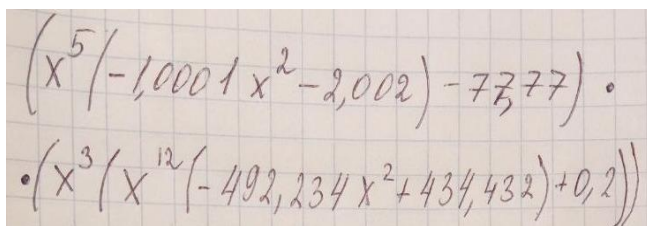 (x⁵(-1,0001x²-2,002)-77,77)·
·(x³(x¹²(-492,234x²+434,432)+0,2))